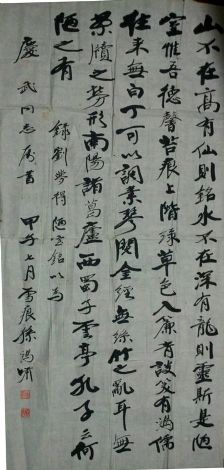 山不在高有仙则銘水不在深有龍則靈斯是陋
室惟吾德馨苔痕上階綠草色入簾青談笑有鴻儒
往来無白丁可以調素琴閱金經無絲竹之亂耳無
案牘之劳形南陽諸葛廬西蜀子雲亭孔子云何
陋之有
錄劉禹錫陋室銘以为
慶武同志属書 甲子七月雪痕